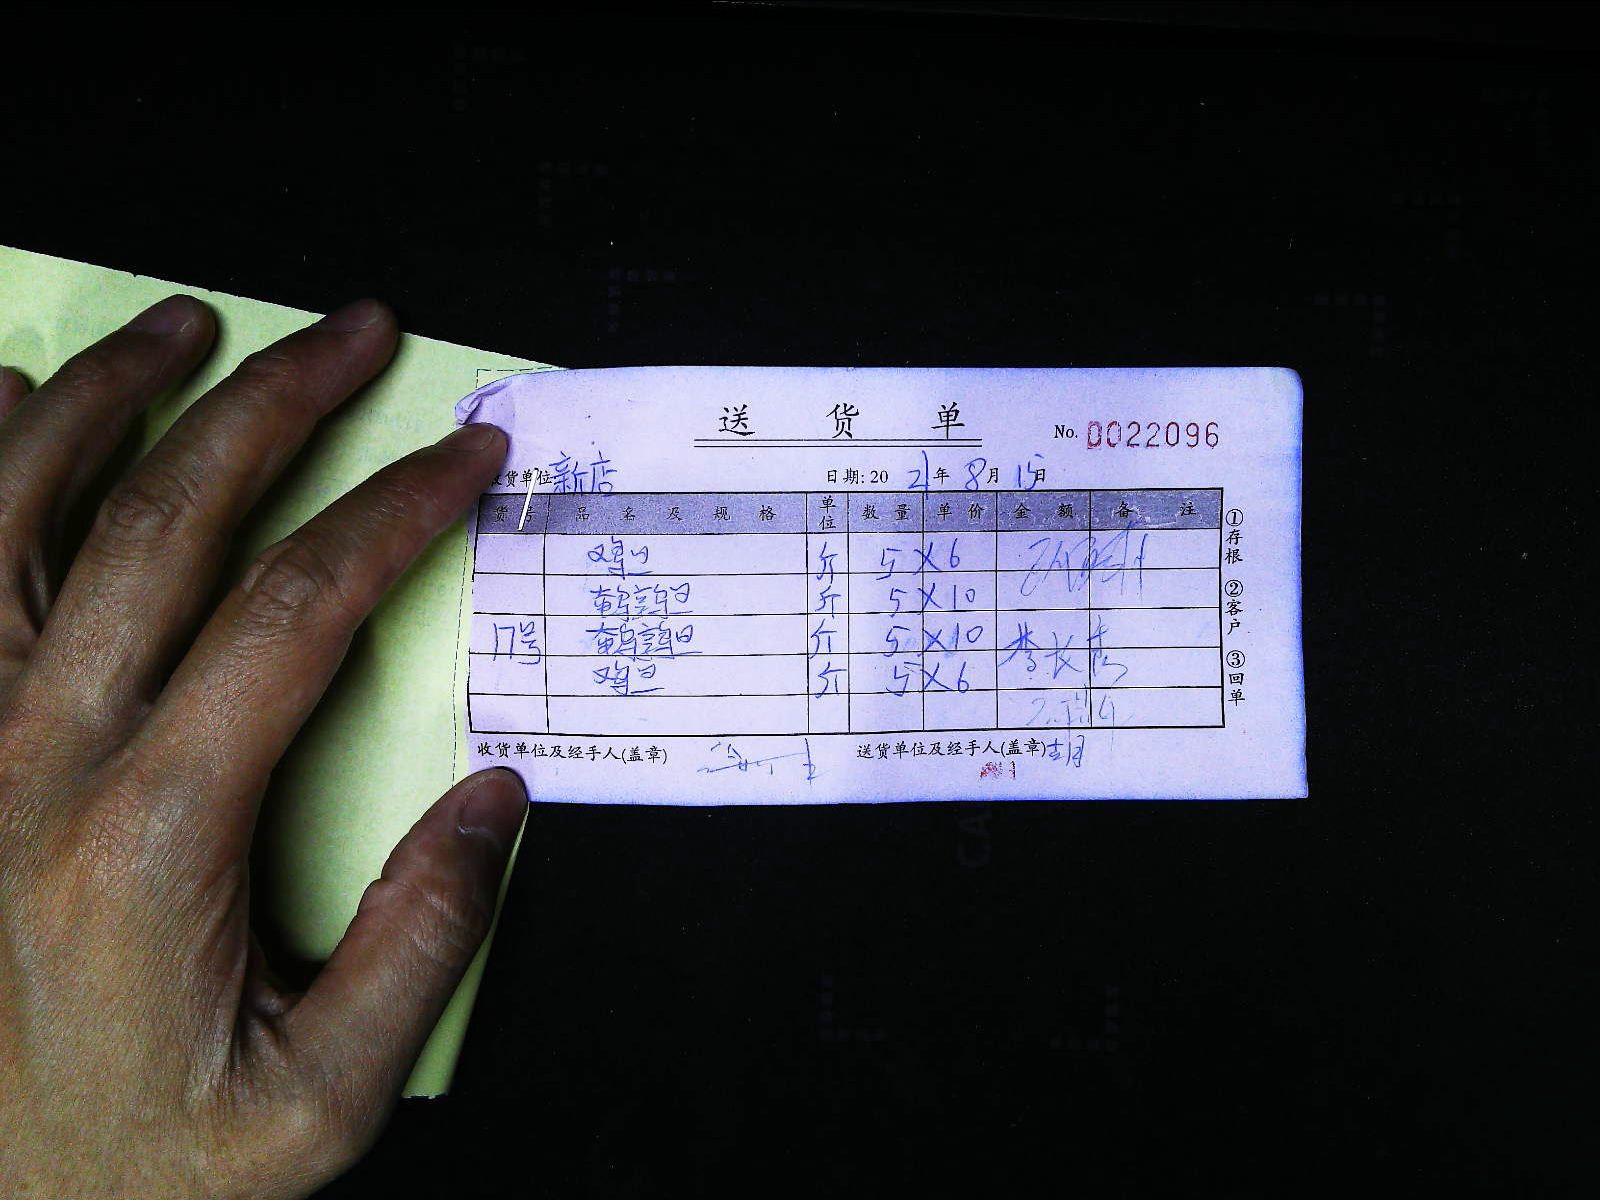 送 货 单
No. 0022096
收货单位 新店 日期: 20 21 年 8 月 15 日
货号 品 名 及 规 格 单位 数 量 单 价 金 额 备 注
鸡旦 斤 5 X 6
鹌鹑旦 斤 5 X 10
17号 鹌鹑旦 斤 5 X 10
鸡旦 斤 5 X 6
收货单位及经手人(盖章) 送货单位及经手人(盖章)
①存根 ②客户 ③回单